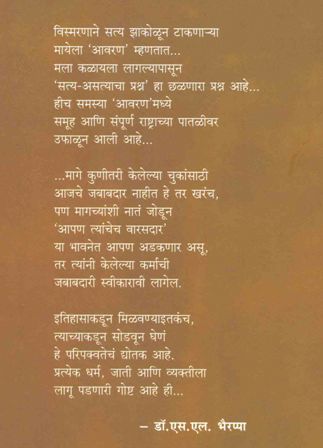 विस्मरणाने सत्य झाकोळून टाकणाऱ्या
मायेला 'आवरण' म्हणतात...
मला कळायला लागल्यापासून
'सत्य-असत्याचा प्रश्न' हा छळणारा प्रश्न आहे...
हीच समस्या 'आवरण'मध्ये
समूह आणि संपूर्ण राष्ट्राच्या पातळीवर
उफाळून आली आहे...
...मागे कुणीतरी केलेल्या चुकांसाठी
आजचे जबाबदार नाहीत हे तर खरंच,
पण मागच्यांशी नातं जोडून
'आपण त्यांचेच वारसदार'
या भावनेत आपण अडकणार असू,
तर त्यांनी केलेल्या कर्माची
जबाबदारी स्वीकारावी लागेल.
इतिहासाकडून मिळवण्याइतकंच,
त्याच्याकडून सोडवून घेणं
हे परिपक्वतेचं द्योतक आहे.
प्रत्येक धर्म, जाती आणि व्यक्तीला
लागू पडणारी गोष्ट आहे ही...
– डॉ.एस.एल. भैरप्पा